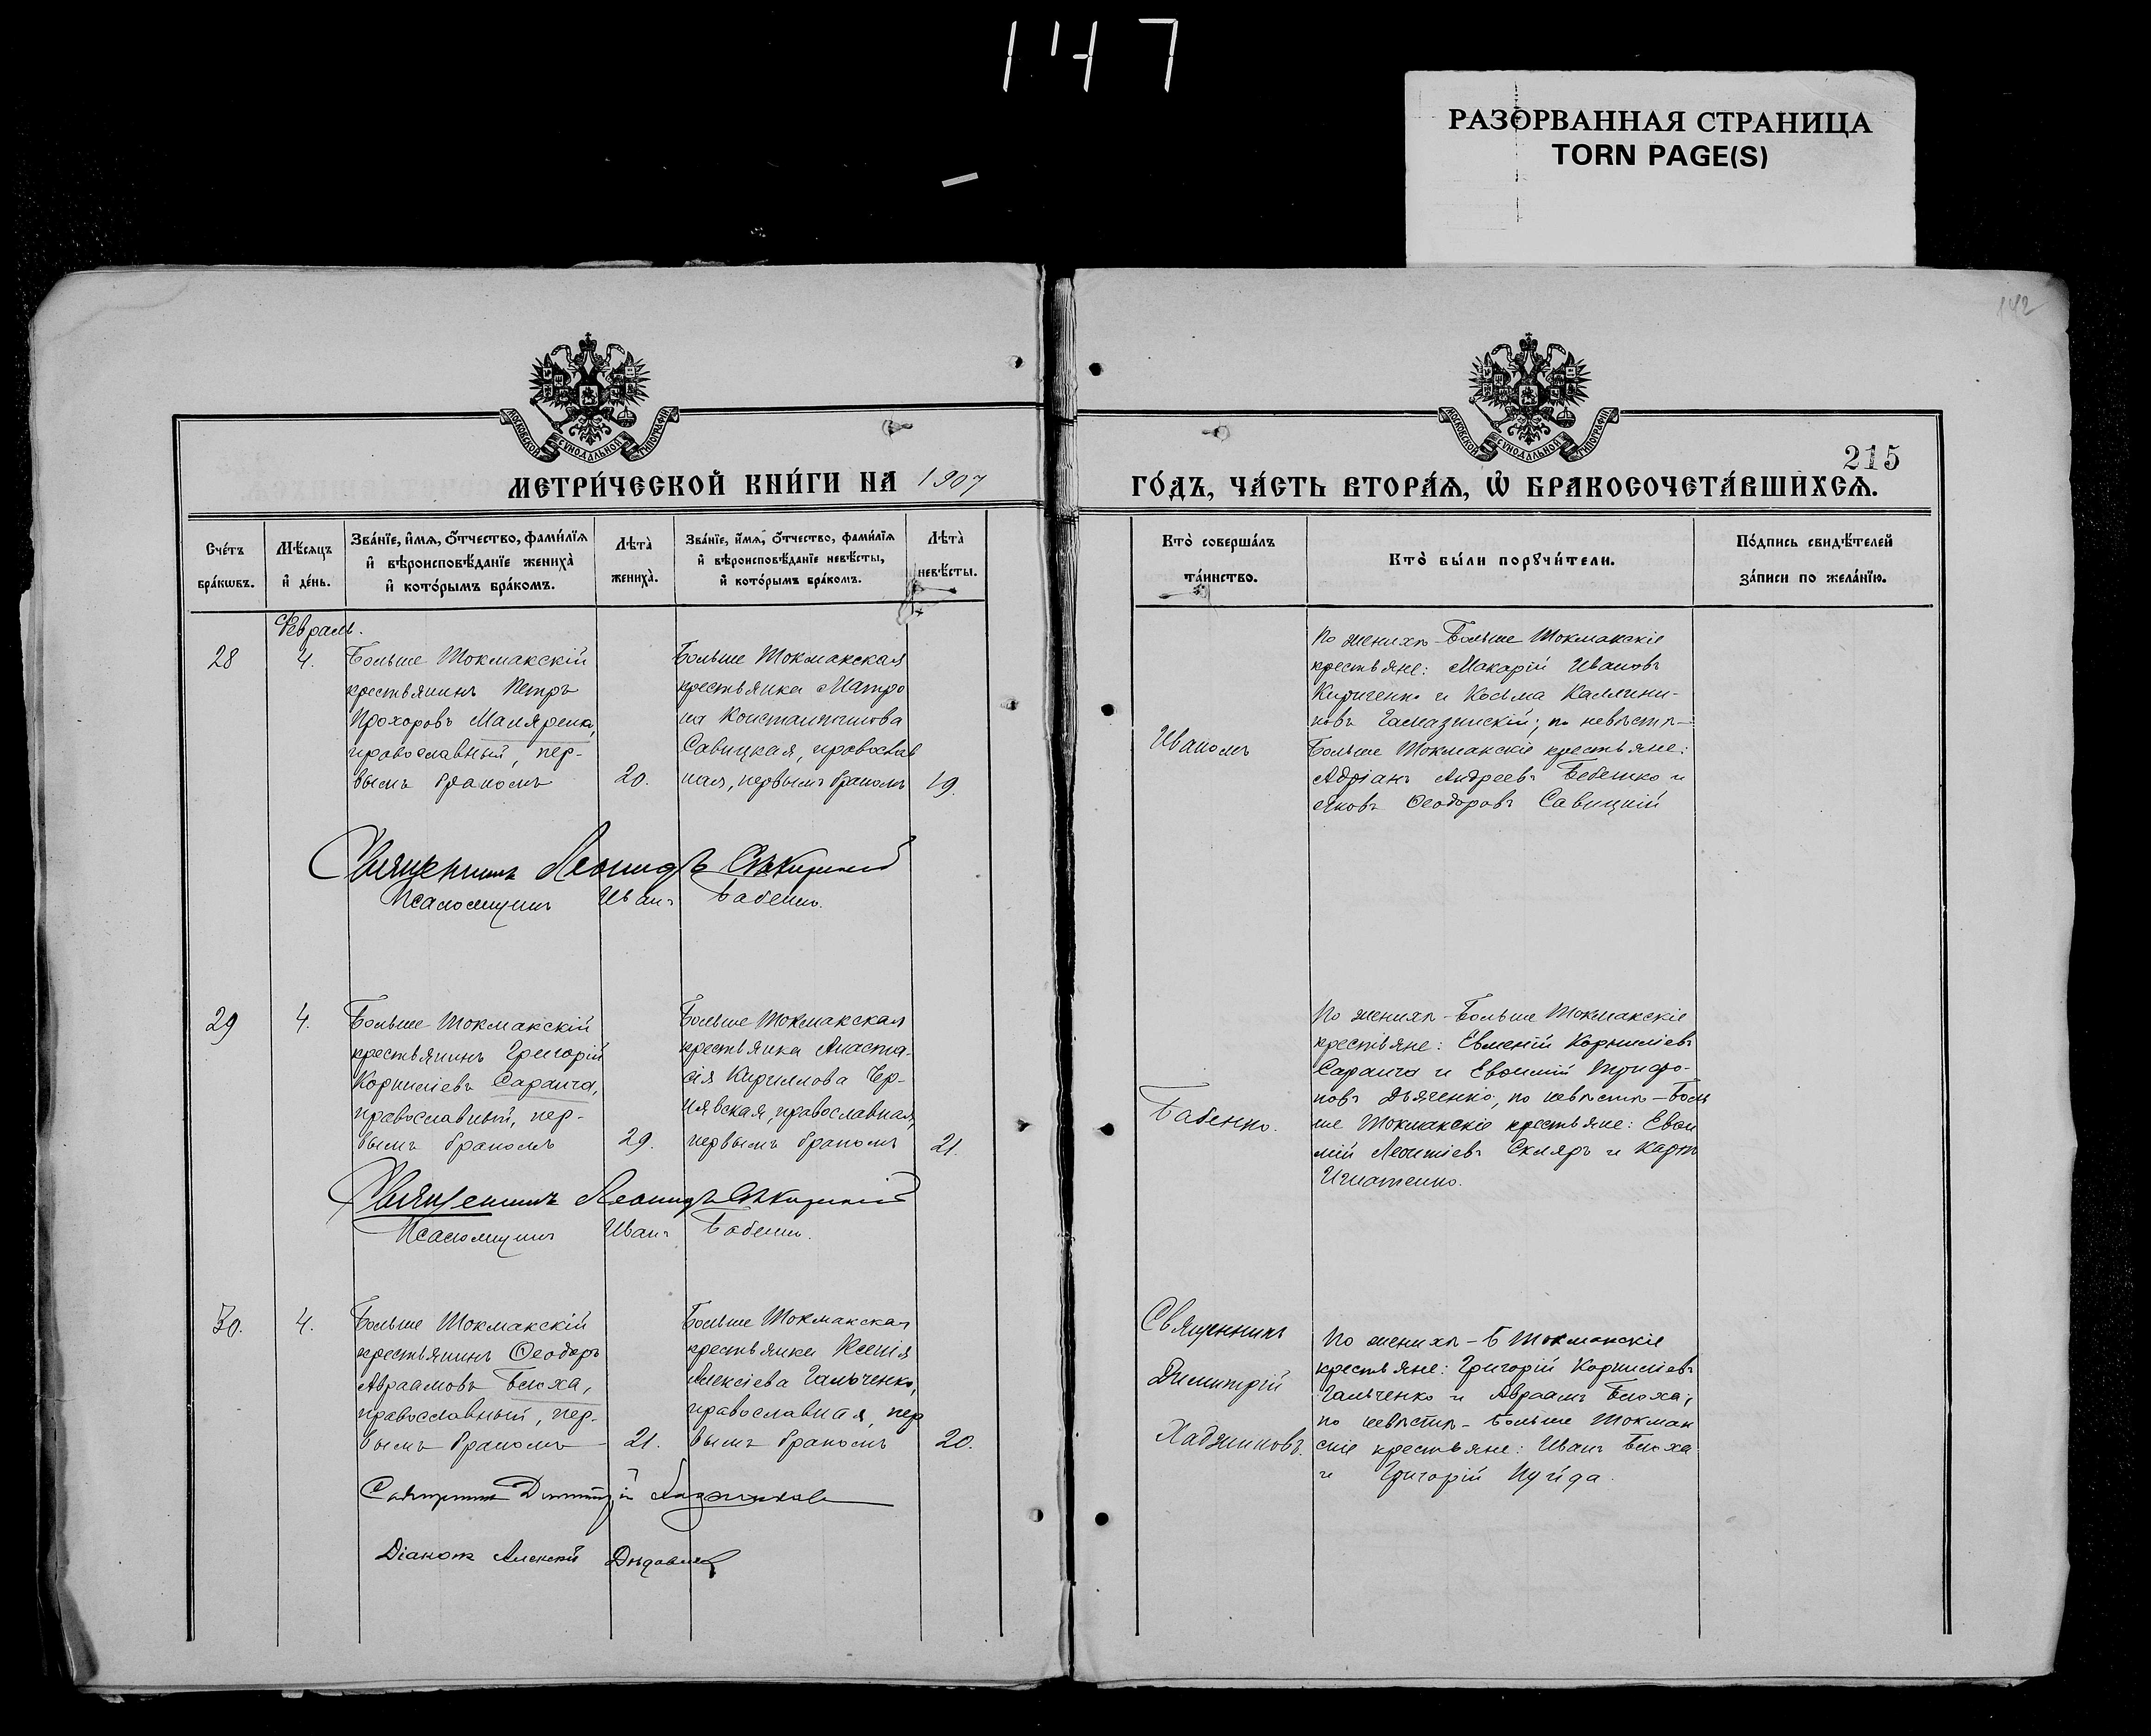 147
РАЗОРВАННАЯ СТРАНИЦА
TORN PAGE(S)
142
МОСКОВСКОЙ СУНОДАЛЬНОЙ ТИПОГРАФІИ
МОСКОВСКОЙ СУНОДАЛЬНОЙ ТИПОГРАФІИ
215
МЕТРИ́ЧЕСКОЙ КНИ́ГИ НА 1907
ГО́ДЪ, ЧА́СТЬ ВТОРА́Ѧ, Ѡ БРАКОСОЧЕТА́ВШИХСѦ.
Сче́тъ
бра́кѡвъ.
Мѣ́сѧцъ
и҆ де́нь.
Зва́нїе, и҆́мѧ, ѻ҆́тчество, фами́лїѧ
и҆ вѣроисповѣ́данїе жениха̀
и҆ кото́рымъ бра́комъ.
Лѣта̀
жениха̀.
Зва́нїе, и҆́мѧ, ѻ҆́тчество, фами́лїѧ
и҆ вѣроисповѣ́данїе невѣ́сты,
и҆ кото́рымъ бра́комъ.
Лѣта̀
невѣ́сты.
Кто̀ соверша́лъ
та́инство.
Кто̀ бы́ли порꙋчи́тели.
По́дпись свидѣ́телей
за́писи по жела́нїю.
Февраль.
28
4.
Больше Токмакскій
крестьянинъ Петръ
Прохоровъ Маляренко,
православный, пер-
вымъ бракомъ
20.
Больше Токмакская
крестьянка Матро
на Константинова
Савицкая, православ
ная, первымъ бракомъ
19.
Иваномъ
По женихѣ Больше Токмакскіе
крестьяне: Макарій Ивановъ
Кириченко и Косьма Каллини-
ковъ; по невѣстѣ-
Больше Токмакскіе крестьяне:
Адріанъ Андреевъ Бебешко и
Яковъ Ѳеодоровъ Савицкій
Священникъ Леонидъ
Псаломщикъ Иванъ Бабенко.
29
4.
Больше Токмакскій
крестьянинъ Григорій
Корниліевъ Саранча,
православный, пер-
вымъ бракомъ
29.
Больше Токмакская
крестьянка Анаста-
сія Кириллова Чер-
нявская, православная,
первымъ бракомъ
21.
Бабенко.
По женихѣ - Больше Токмакскіе
крестьяне: Евменій Корниліевъ
Саранча и Евѳимій Трифо-
новъ Дьяченко, по невѣстѣ - Боль
ше Токмакскіе крестьяне: Евѳи
мій Леонтіевъ Скляръ и Карпъ
Игнатенко.
Священникъ Леонидъ
Псаломщикъ Иванъ Бабенко.
30.
4.
Больше Токмакскій
крестьянинъ Ѳеодоръ
Авраамовъ Блоха,
православный, пер-
вымъ бракомъ
21.
Больше Токмакская
крестьянка Ксенія
Алексіева Гальченко,
православная, пер
вымъ бракомъ
20.
Священникъ
Димитрій
Хаджиновъ.
По женихѣ - Б Токмакскіе
крестьяне: Григорій Корниліевъ
Гальченко и Авраамъ Блоха;
по невѣстѣ - Больше Токмак
скіе крестьяне: Иванъ Блоха
и Григорій Пуйда.
Священникъ Димитрій Хаджиновъ
Діаконъ Алексій